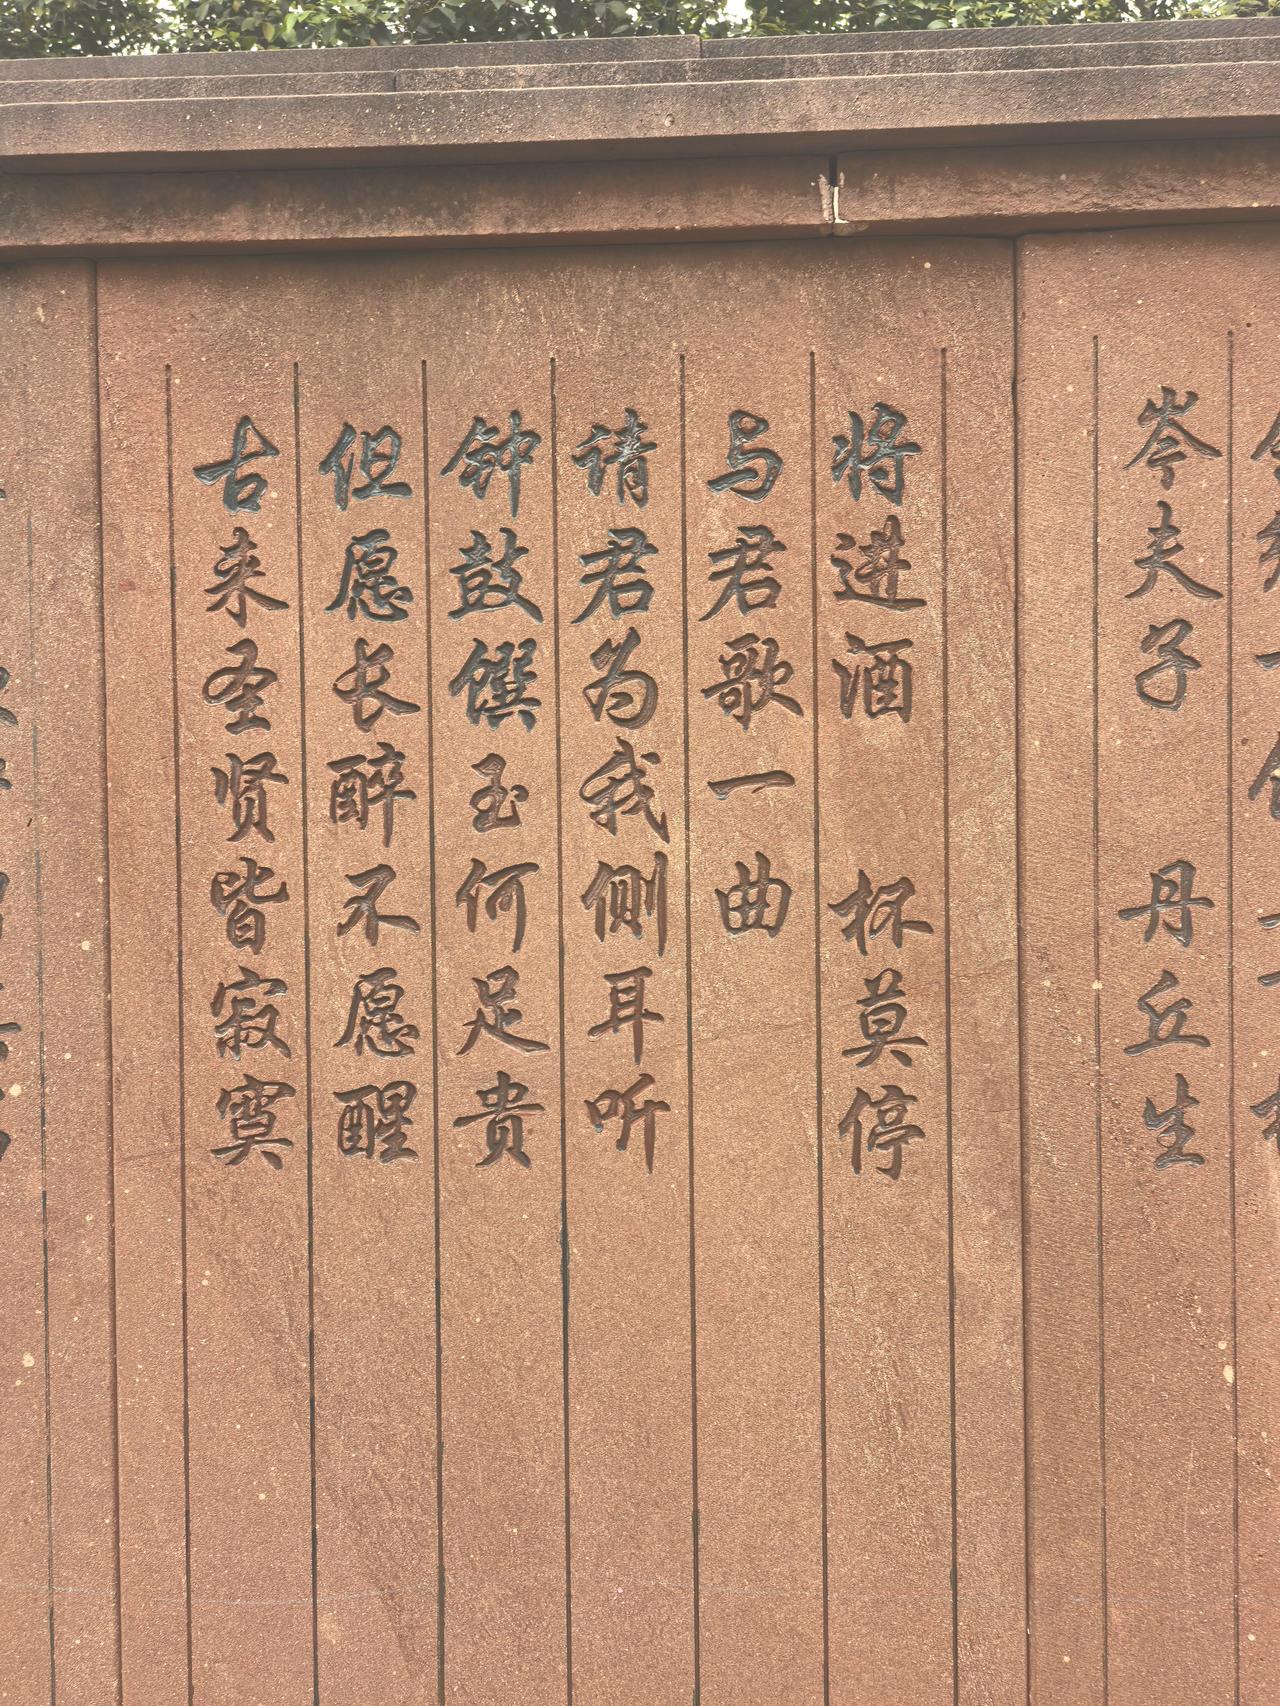 岑夫子 丹丘生
将进酒 杯莫停
与君歌一曲
请君为我侧耳听
钟鼓馔玉何足贵
但愿长醉不愿醒
古来圣贤皆寂寞